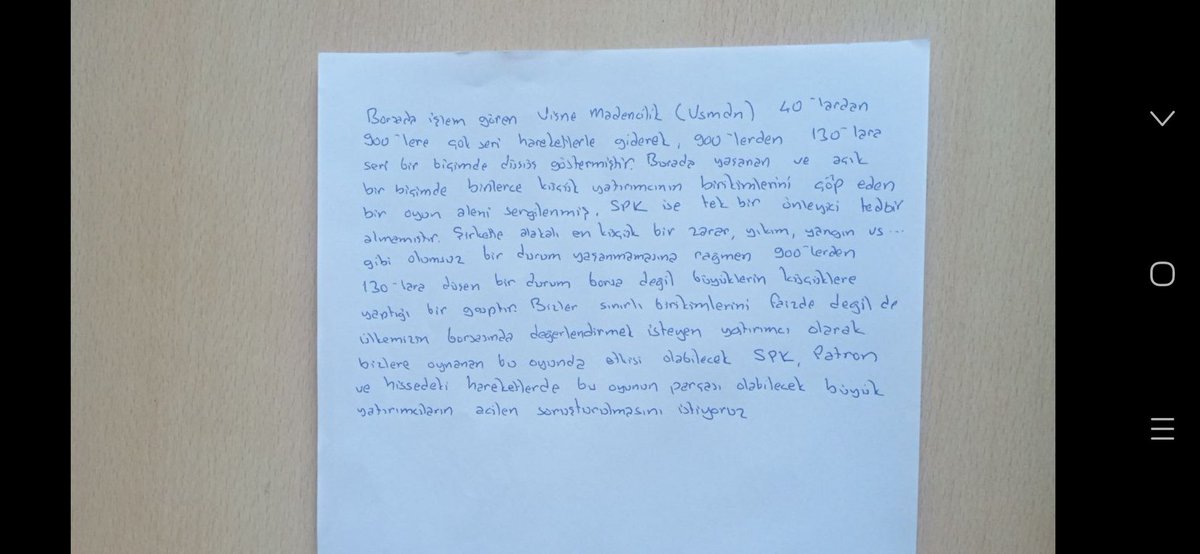 Borsada işlem gören Vişne Madencilik (Vsmdn) 40-lardan
900-lere çok seri hareketlerle giderek, 900-lerden 130-lara
seri bir biçimde düşüş göstermiştir. Burada yaşanan ve açık
bir biçimde binlerce küçük yatırımcının birikimlerini çöp eden
bir oyun aleni sergilenmiş. SPK ise tek bir önleyici tedbir
almamıştır. Şirketle alakalı en küçük bir zarar, yıkım, yangın vs...
gibi olumsuz bir durum yaşanmamasına rağmen 900-lerden
130-lara düşen bir durum borsa değil büyüklerin küçüklere
yaptığı bir gasptır. Bizler sınırlı birikimlerini faizde değil de
ülkemizin borsasında değerlendirmek isteyen yatırımcı olarak
bizlere oynanan bu oyunda etkisi olabilecek SPK, Patron
ve hissedeki hareketlerde bu oyunun parçası olabilecek büyük
yatırımcıların acilen soruşturulmasını istiyoruz